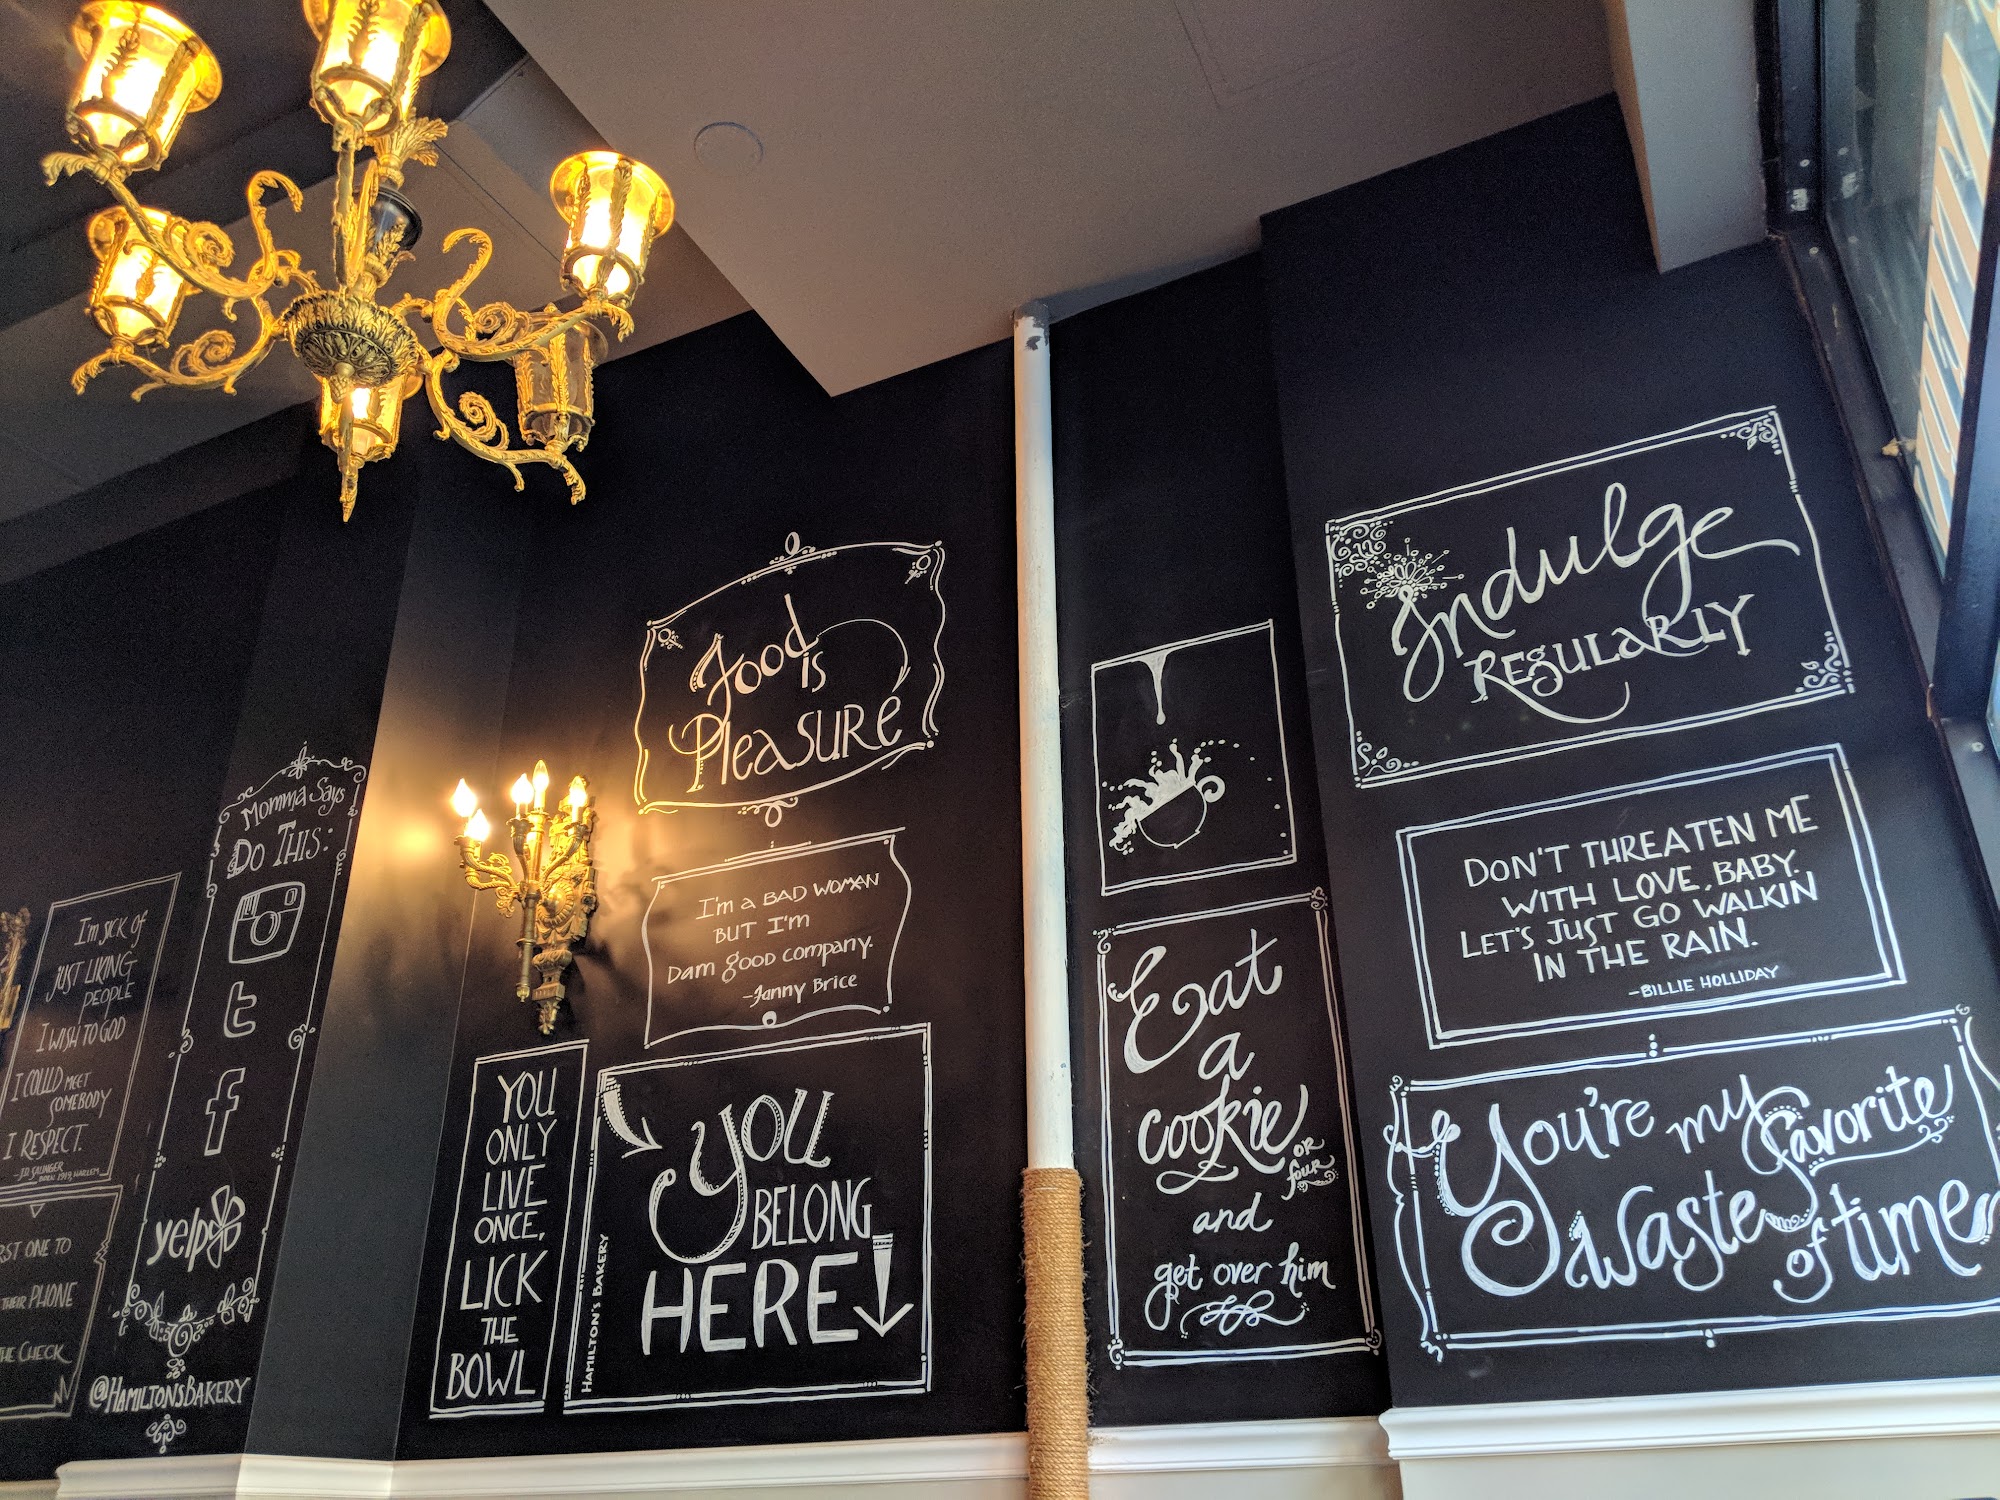 I'm sick of
just liking
people
I wish to God
I could meet
somebody
I respect.
-J.D. Salinger
Born 1919, Harlem
one to
their phone
Check
Momma Says
Do This:
t
f
yelp
@HamiltonsBakery
Food
is
Pleasure
I'm a bad woman
but I'm
Dam good company.
-Fanny Brice
You
only
live
once,
lick
the
bowl
Hamilton's Bakery
You
belong
here
Eat
a
cookie
or
four
and
get over him
Indulge
Regularly
Don't threaten me
with love, baby.
Let's just go walkin
in the rain.
-Billie Holliday
You're my favorite
waste of time